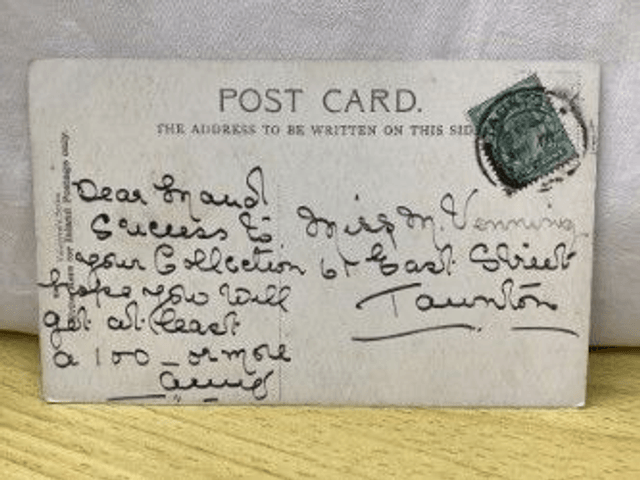 POST CARD.
THE ADDRESS TO BE WRITTEN ON THIS SIDE
Dear Maud
Success to
your Collection
hope you will
get at least
a 100 - or more
Miss M. Venning
61 East Street
Taunton
for Inland Postage only.